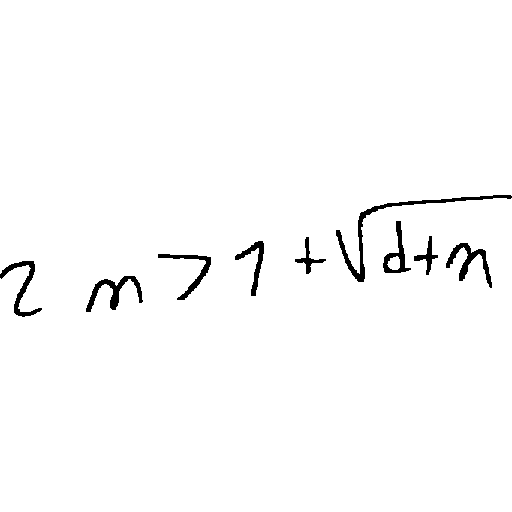 2 m > 1 + √(d+n)